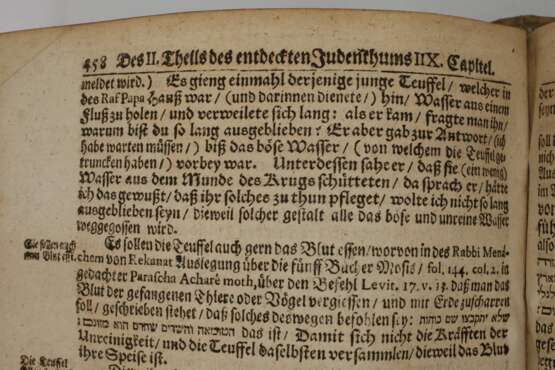 458 Des II. Theils des entdeckten Judenthums IIX. Capitel.
meldet wird.) Es gieng einmahl derjenige junge Teuffel / welcher in
des Raf Papa Hauß war / (und darinnen dienete /) hin / Wasser aus einem
Fluß zu holen / und verweilete sich lang: als er kam / fragte man ihn /
warum bist du so lang ausgeblieben? Er aber gab zur Antwort / (ich
habe warten müssen /) biß das böse Wasser / (von welchem die Teuffel ge-
truncken haben /) vorbey war. Unterdessen sahe er / daß sie (ein wenig)
Wasser aus dem Munde des Krugs schütteten / da sprach er / hätte
ich das gewußt / daß ihr solches zu thun pfleget / wolte ich nicht so lang
ausgeblieben seyn / dieweil solcher gestalt alle das böse und unreine Wasser
weggegossen wird.
Sie sollen auch
Es sollen die Teuffel auch gern das Blut essen / worvon in des Rabbi Mená-
chem von Rekanat Auslegung über die fünff Bücher Mosis / fol. 144. col. 2. in
gedachter Parascha Acharè moth, über den Befehl Levit. 17. v. 13. daß man das
Blut der gefangenen Thiere oder Vögel vergiessen / und mit Erde zuscharren
soll / geschrieben stehet / daß solches deswegen befohlen sey: שלא יתקבצו שם כוחות
הטומאה והשדים שהדם הוא מזונם: das ist / Damit sich nicht die Kräfften der
Unreinigkeit / und die Teuffel daselbsten versammlen / dieweil das Blut
ihre Speise ist.
Die Teuffel